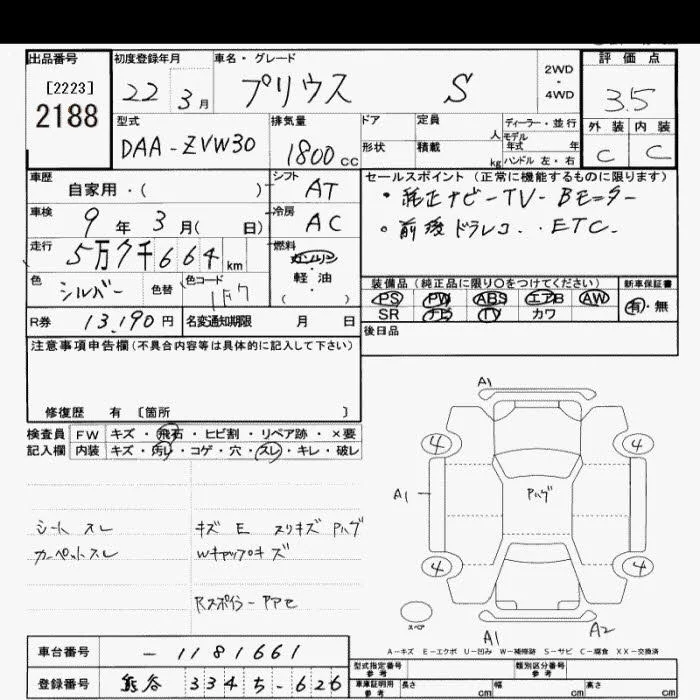 出品番号 初度登録年月 車名・グレード 2WD・4WD 評価点
[2223]
2188
22 3月 プリウス S 3.5
型式 排気量 ドア 定員 人 ディーラー・並行 外装 内装
DAA-ZVW30 1800cc 形状 積載 kg モデル年式 年 ハンドル 左・右 C C
車歴 自家用・( ) シフト AT セールスポイント(正常に機能するものに限ります)
・純正ナビ-TV-Bモーター
車検 9年 3月( 日) 冷房 AC
・前後ドラレコ・ETC
走行 5万7千664km 燃料 ガソリン 軽油 ( )
色 シルバー 色替 色コード 1F7
装備品(純正品に限り○をつけてください) 新車保証書
PS PW ABS エアB AW 有・無
SR ナビ TV カワ
R券 13,190円 名変通知期限 月 日 後日品
注意事項申告欄(不具合内容等は具体的に記入して下さい)
修復歴 有 [箇所 ]
検査員記入欄 FW キズ・飛石・ヒビ割・リペア跡・×要
内装 キズ・汚レ・コゲ・穴・スレ・キレ・破レ
シートスレ キズ E スリキズ Pハゲ
カーペットスレ Wキャップキズ
Rスポイラー
A1
4 4
A1 Pハゲ
4 4
スペア
A1 A2
A-キズ E-エクボ U-凹み W-補修跡 S-サビ C-腐食 XX-交換済
車台番号 -1181661
型式指定番号 参考 類別区分番号 参考
登録番号 熊谷 334ち-626
車庫証明用 参考 長さ cm 幅 cm 高さ cm